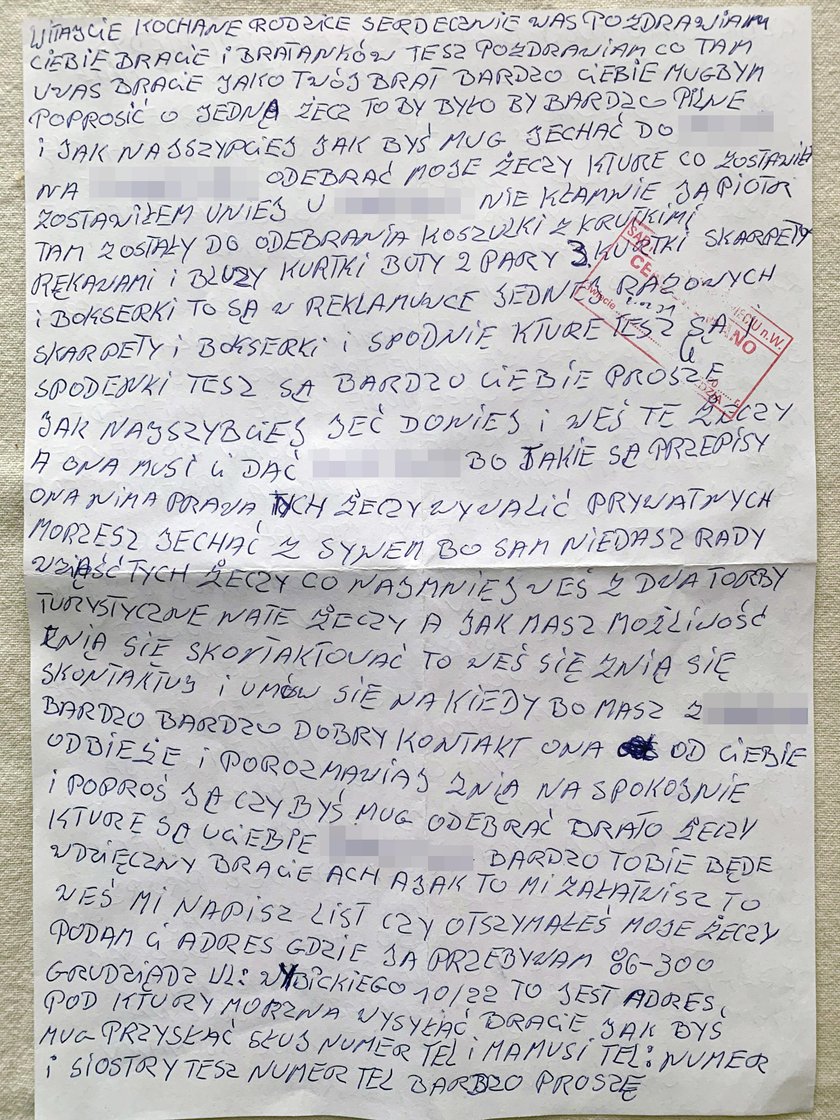 WITAJCIE KOCHANE RODZICE SERDECZNIE WAS POZDRAWIAM
CIEBIE BRACIE I BRATANKÓW TESZ POZDRAWIAM CO TAM
UWAS BRACIE JAKO TWÓJ BRAT BARDZO CIEBIE MUGBYM
POPROSIĆ O JEDNĄ ŻECZ TO BY BYŁO BY BARDZO PILNE
I JAK NAJSZYPCIEJ JAK BYŚ MUG JECHAĆ DO
NA ODEBRAĆ MOJE ŻECZY KTURE CO ZOSTAWIŁ
ZOSTAWIŁEM UNIEJ U NIE KŁAMNIE JA PIOTR
TAM ZOSTAŁY DO ODEBRANIA KOSZULKI Z KRUTKIMI
RĘKAWAMI I BLUZY KURTKI BUTY 2 PARY 3 KURTKI SKARPETY
I BOKSERKI TO SĄ W REKLAMUWCE JEDNEJ RAZOWYCH
SKARPETY I BOKSERKI I SPODNIĘ KTURE TESZ SĄ I
SPODENKI TESZ SĄ BARDZO CIEBIE PROSZE
JAK NAJSZYBCIEJ JEĆ DONIEJ I WEŚ TE ŻECZY
A ONA MUSI CI DAĆ BO TAKIE SĄ PRZEPISY
ONA NIMA PRAWA TYCH ŻECZY WYWALIĆ PRYWATNYCH
MORZESZ JECHAĆ Z SYNEM BO SAM NIEDASZ RADY
WZIĄŚĆ TYCH ŻECZY CO NAJMNIEJ WEŚ Z DWA TORBY
TURYSTYCZNE NATE ŻECZY A JAK MASZ MOŻLIWOŚĆ
ZNIĄ SIE SKONTAKTOWAĆ TO WEŚ SIĘ ZNIĄ SIĘ
SKONTAKTUJ I UMÓW SIE NA KIEDY BO MASZ Z
BARDZO BARDZO DOBRY KONTAKT ONA OD CIEBIE
ODBIEŻE I POROZMAWIAJ ZNIĄ NA SPOKOJNIE
I POPROŚ JĄ CZY BYŚ MUG ODEBRAĆ BRATO ŻECZY
KTURE SĄ UCIEBIE BARDZO TOBIE BĘDE
WDZIĘCZNY BRACIE ACH A JAK TO MI ZAŁATWISZ TO
WEŚ MI NAPISZ LIST CZY OTSZYMAŁEŚ MOJE ŻECZY
PODAM CI ADRES GDZIE JA PRZEBYWAM 86-300
GRUDZIĄDZ UL: WYBICKIEGO 10/22 TO JEST ADRES
POD KTURY MORZNA WYSYŁAĆ BRACIE JAK BYŚ
MUG PRZYSŁAĆ SŁUJ NUMER TEL I MAMUSI TEL: NUMER
I SIOSTRY TESZ NUMER TEL BARDZO PROSZĘ